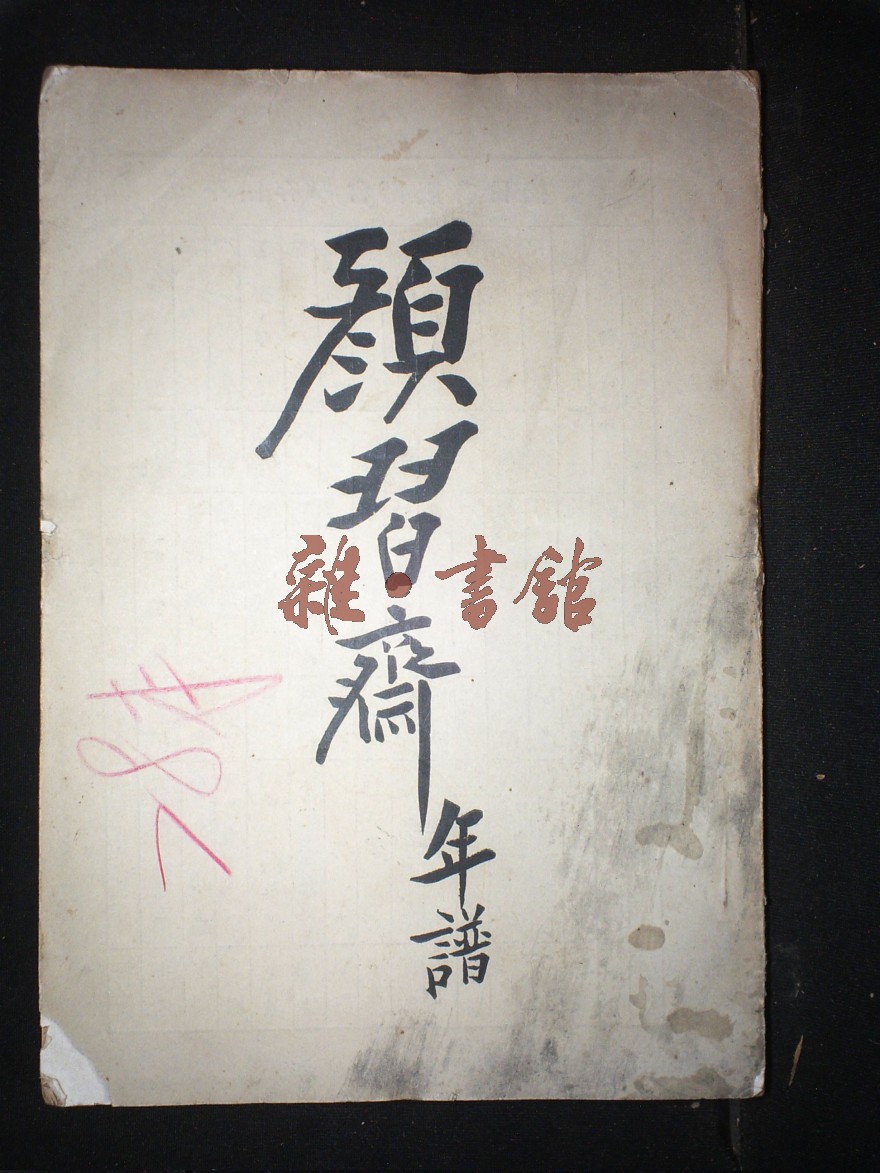 顏習齋年譜
雜·書館